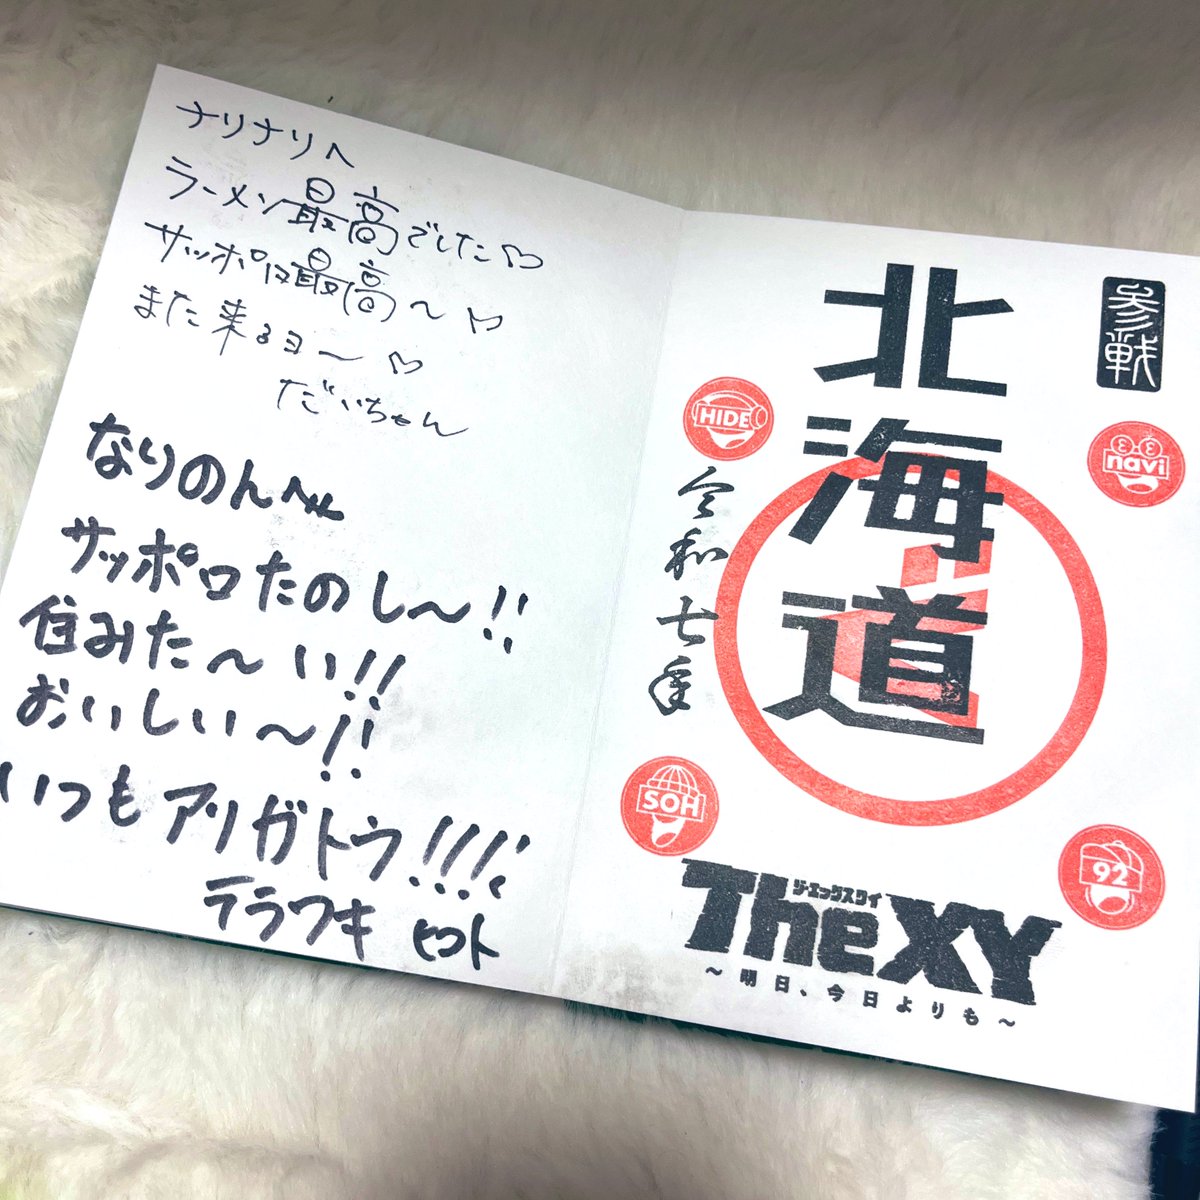 ナリナリへ
ラーメン最高でした♡
サッポロは最高〜♡
また来るヨー〜♡
だいちゃん
なりのんへ
サッポロたのし〜!!
住みた〜い!!
おいしい〜!!
いつもアリガトウ!!!!
テラワキ ヒロト
参戦
北海道
HIDE
navi
令和七年
SOH
92
ジ・エックスワイ
The XY
〜明日、今日よりも〜